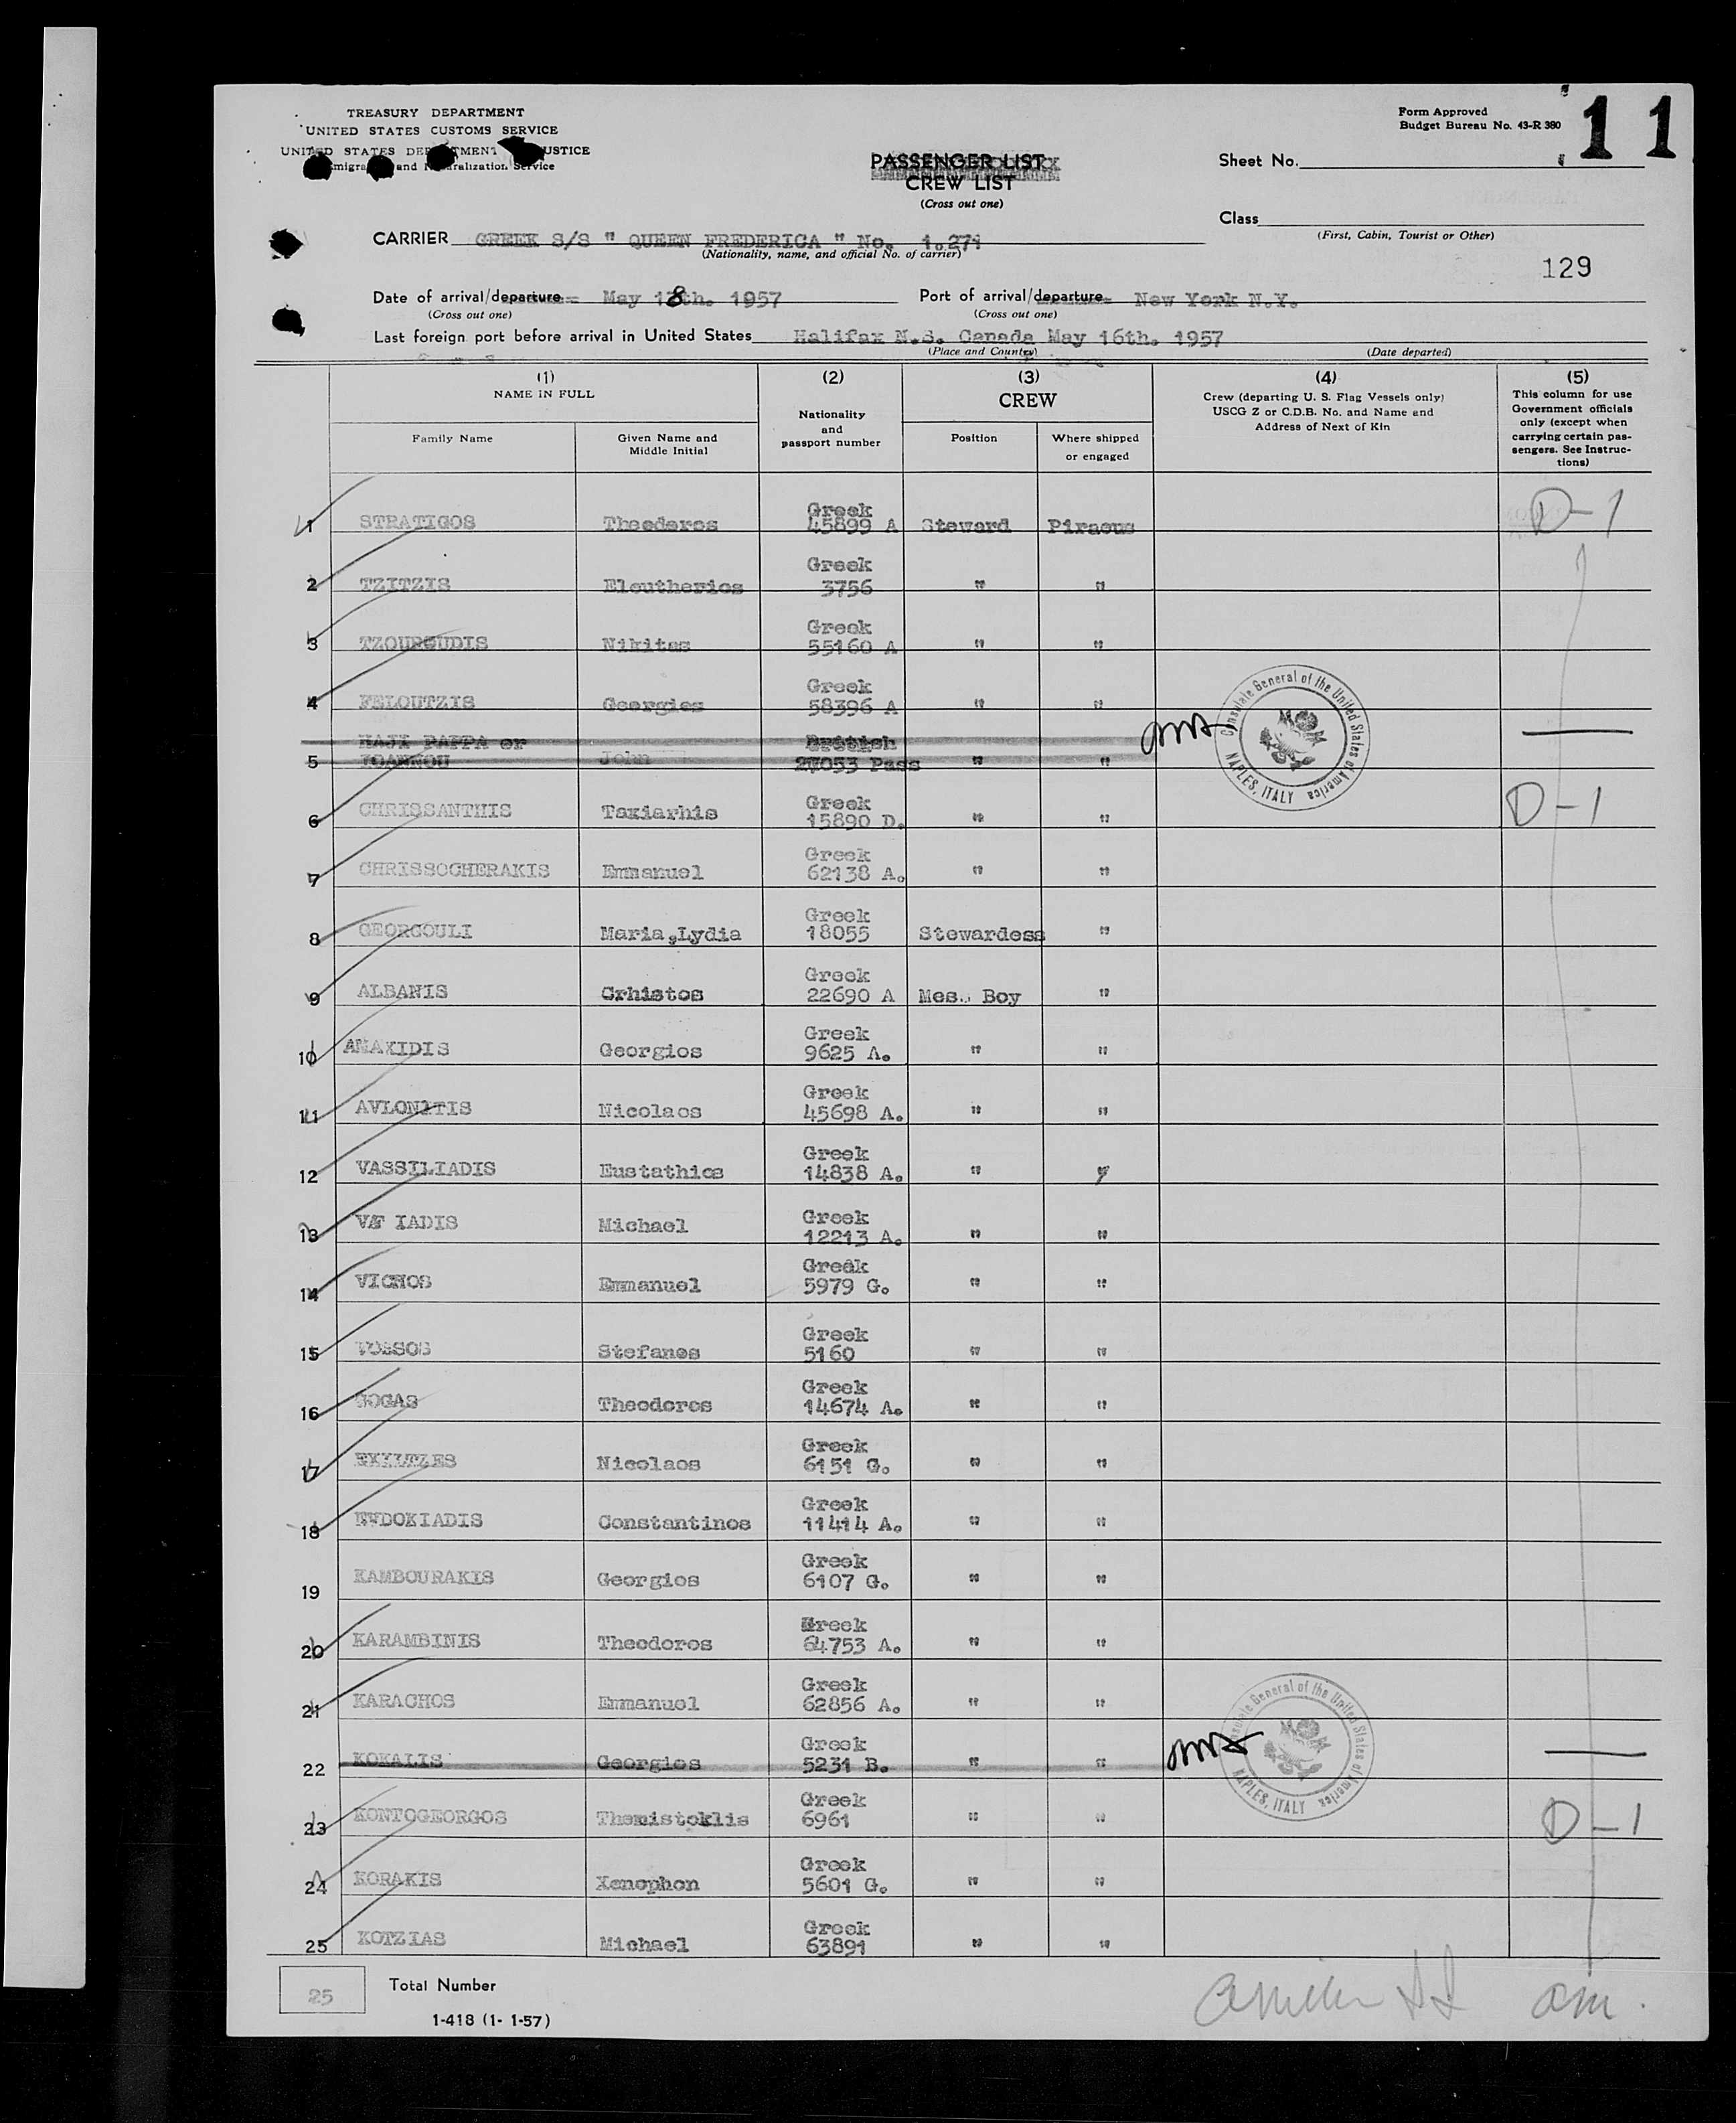 TREASURY DEPARTMENT
UNITED STATES CUSTOMS SERVICE
UNITED STATES DEPARTMENT JUSTICE
and Naturalization Service
Form Approved
Budget Bureau No. 43-R 380
11
Sheet No.
PASSENGER LIST
CREW LIST
(Cross out one)
Class
(First, Cabin, Tourist or Other)
CARRIER GREEK S/S " QUEEN FREDERICA " No. 1.271
(Nationality, name, and official No. of carrier)
129
Date of arrival/departure May 18th. 1957 Port of arrival/departure New York N.Y.
(Cross out one) (Cross out one)
Last foreign port before arrival in United States Halifax N.S. Canada May 16th. 1957
(Place and Country) (Date departed)
(1) (2) (3) (4) (5)
NAME IN FULL
Nationality and passport number
CREW
Crew (departing U. S. Flag Vessels only)
USCG Z or C.D.B. No. and Name and
Address of Next of Kin
This column for use
Government officials
only (except when
carrying certain pas-
sengers. See Instruc-
tions)
Family Name Given Name and Middle Initial Position Where shipped or engaged
Greek D-1
1 STRATIGOS Theodoros 45899 A Steward Piraeus
Greek
2 TZITZIS Eleutherios 3756 " "
Greek
3 TZOUROUDIS Nikitas 55160 A " "
Greek
4 FELOUTZIS Georgios 58396 A " "
HAJI PAPPA or British
5 YOANNOU John 27053 Pass " "
Consulate General of the United States of America
NAPLES, ITALY
Greek D-1
6 CHRISSANTHIS Taxiarhis 15890 D. " "
Greek
7 CHRISSOCHERAKIS Emmanuel 62138 A. " "
Greek
8 GEORGOULI Maria,Lydia 18055 Stewardess "
Greek
9 ALBANIS Crhistos 22690 A Mes. Boy "
Greek
10 AMAXIDIS Georgios 9625 A. " "
Greek
11 AVLONITIS Nicolaos 45698 A. " "
Greek
12 VASSILIADIS Eustathios 14838 A. " "
Greek
13 IADIS Michael 12213 A. " "
Greek
14 VICHOS Emmanuel 5979 G. " "
Greek
15 VOSSOS Stefanos 5160 " "
Greek
16 GOGAS Theodoros 14674 A. " "
Greek
17 Nicolaos 6151 G. " "
Greek
18 EVDOKIADIS Constantinos 11414 A. " "
Greek
19 KAMBOURAKIS Georgios 6107 G. " "
Greek
20 KARAMBINIS Theodoros 64753 A. " "
Greek
21 KARACHOS Emmanuel 62856 A. " "
Greek
22 KOKALIS Georgios 5231 B. " "
Consulate General of the United States of America
NAPLES, ITALY
Greek
23 KONTOGEORGOS Themistoklis 6961 " " D-1
Greek
24 KORAKIS Xenophon 5601 G. " "
Greek
25 KOTZIAS Michael 63891 " "
25 Total Number
1-418 (1- 1-57)